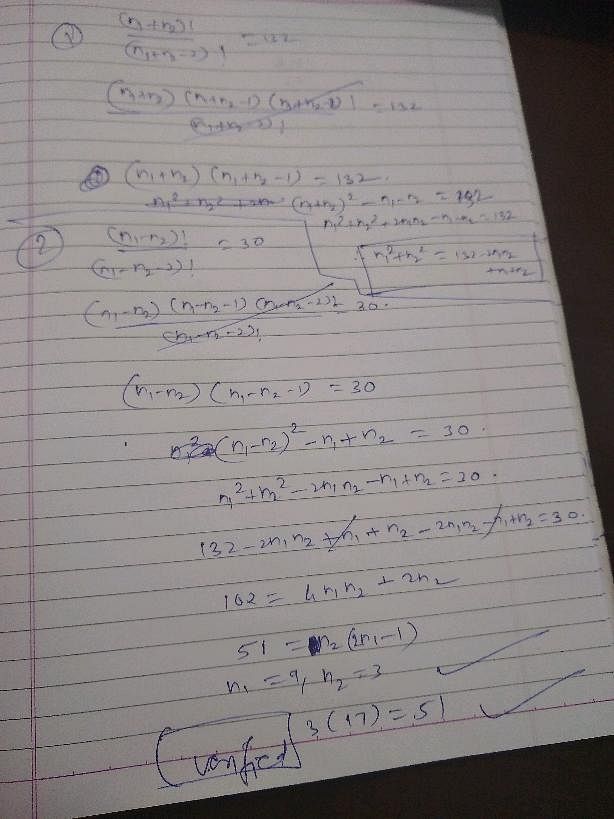 1) (n1+n2)! / (n1+n2-2)! = 132
(n1+n2) (n1+n2-1) (n1+n2-2)! / (n1+n2-2)! = 132
(n1+n2) (n1+n2-1) = 132.
n1² + n2² + 2n (n1+n2)² - n1-n2 = 132
n1²+n2²+2n1n2-n1-n2=132
n1²+n2² = 132-2n1n2 +n1+n2
2) (n1-n2)! / (n1-n2-2)! = 30
(n1-n2) (n1-n2-1) (n1-n2-2)! / (n1-n2-2)! = 30.
(n1-n2) (n1-n2-1) = 30
(n1-n2)² - n1 + n2 = 30.
n1²+n2² - 2n1n2 - n1+n2 = 30.
132 - 2n1n2 + n1 + n2 - 2n1n2 - n1 + n2 = 30.
102 = 4n1n2 + 2n2
51 = n2 (2n1-1)
n1 = 9, n2 = 3 ✓
verified 3(17) = 51 ✓